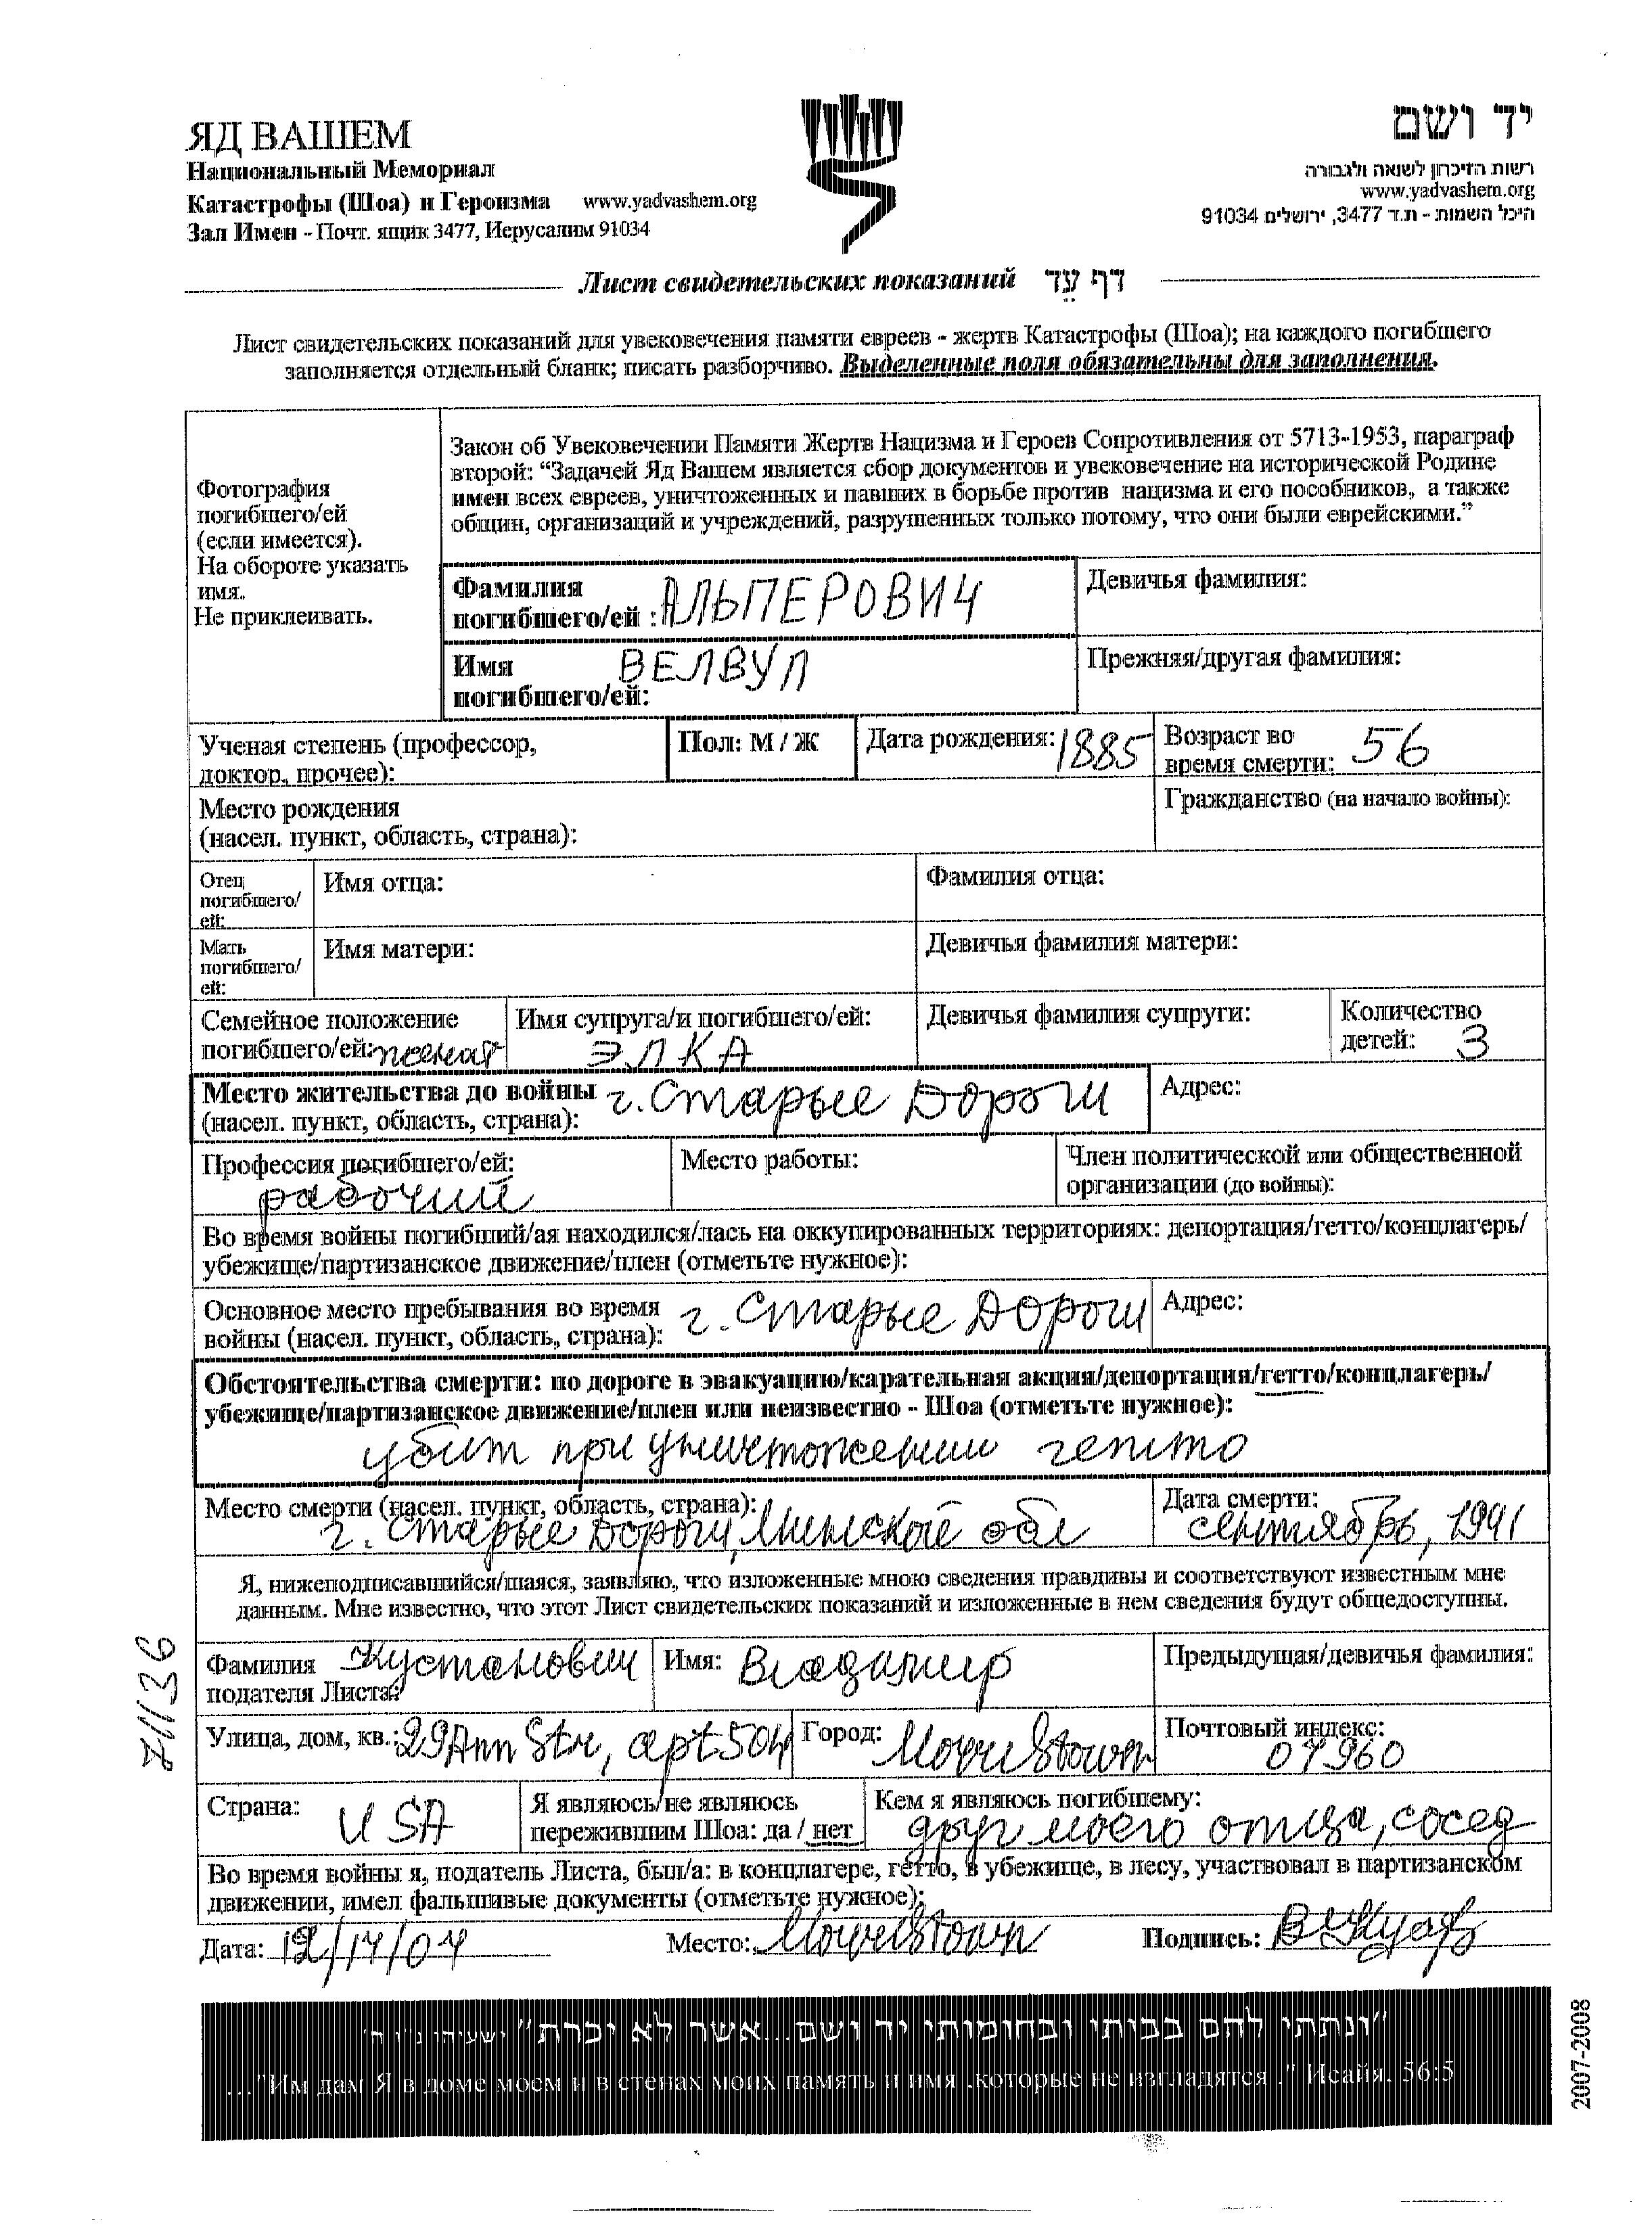 ЯД ВАШЕМ
Национальный Мемориал
Катастрофы (Шоа) и Героизма www.yadvashem.org
Зал Имен - Почт. ящик 3477, Иерусалим 91034
יד ושם
רשות הזיכרון לשואה ולגבורה
www.yadvashem.org
היכל השמות - ת.ד 3477, ירושלים 91034
Лист свидетельских показаний דף עֵד
Лист свидетельских показаний для увековечения памяти евреев - жертв Катастрофы (Шоа); на каждого погибшего
заполняется отдельный бланк; писать разборчиво. Выделенные поля обязательны для заполнения.
Фотография
погибшего/ей
(если имеется).
На обороте указать
имя.
Не приклеивать.
Закон об Увековечении Памяти Жертв Нацизма и Героев Сопротивления от 5713-1953, параграф
второй: “Задачей Яд Вашем является сбор документов и увековечение на исторической Родине
имен всех евреев, уничтоженных и павших в борьбе против нацизма и его пособников, а также
общин, организаций и учреждений, разрушенных только потому, что они были еврейскими.”
Фамилия
погибшего/ей : АЛЬПЕРОВИЧ
Девичья фамилия:
Имя ВЕЛВУЛ
погибшего/ей:
Прежняя/другая фамилия:
Ученая степень (профессор,
доктор, прочее):
Пол: М / Ж
Дата рождения: 1885
Возраст во
время смерти: 56
Место рождения
(насел. пункт, область, страна):
Гражданство (на начало войны):
Отец
погибшего/
ей:
Имя отца:
Фамилия отца:
Мать
погибшего/
ей:
Имя матери:
Девичья фамилия матери:
Семейное положение
погибшего/ей: женат
Имя супруга/и погибшего/ей:
ЭЛКА
Девичья фамилия супруги:
Количество
детей: 3
Место жительства до войны г. Старые Дороги
(насел. пункт, область, страна):
Адрес:
Профессия погибшего/ей:
рабочий
Место работы:
Член политической или общественной
организации (до войны):
Во время войны погибший/ая находился/лась на оккупированных территориях: депортация/гетто/концлагерь/
убежище/партизанское движение/плен (отметьте нужное):
Основное место пребывания во время
войны (насел. пункт, область, страна): г. Старые Дороги
Адрес:
Обстоятельства смерти: по дороге в эвакуацию/карательная акция/депортация/гетто/концлагерь/
убежище/партизанское движение/плен или неизвестно - Шоа (отметьте нужное):
убит при уничтожении гетто
Место смерти (насел. пункт, область, страна):
г. Старые Дороги, Минской обл
Дата смерти:
сентябрь, 1941
Я, нижеподписавшийся/шаяся, заявляю, что изложенные мною сведения правдивы и соответствуют известным мне
данным. Мне известно, что этот Лист свидетельских показаний и изложенные в нем сведения будут общедоступны.
Фамилия Кустанович
подателя Листа:
Имя: Владимир
Предыдущая/девичья фамилия:
Улица, дом, кв.: 29 Ann Str, apt 504
Город: Morristown
Почтовый индекс:
07960
Страна: USA
Я являюсь/не являюсь
пережившим Шоа: да / нет
Кем я являюсь погибшему:
друг моего отца, сосед
Во время войны я, податель Листа, был/а: в концлагере, гетто, в убежище, в лесу, участвовал в партизанском
движении, имел фальшивые документы (отметьте нужное):
Дата: 12/14/04 Место: Morristown Подпись:
71136
"ונתתי להם בביתי ובחומותי יד ושם...אשר לא יכרת" ישעיהו נ"ו ה'
..."Им дам Я в доме моем и в стенах моих память и имя ,которые не изгладятся ." Исайя. 56:5
2007-2008